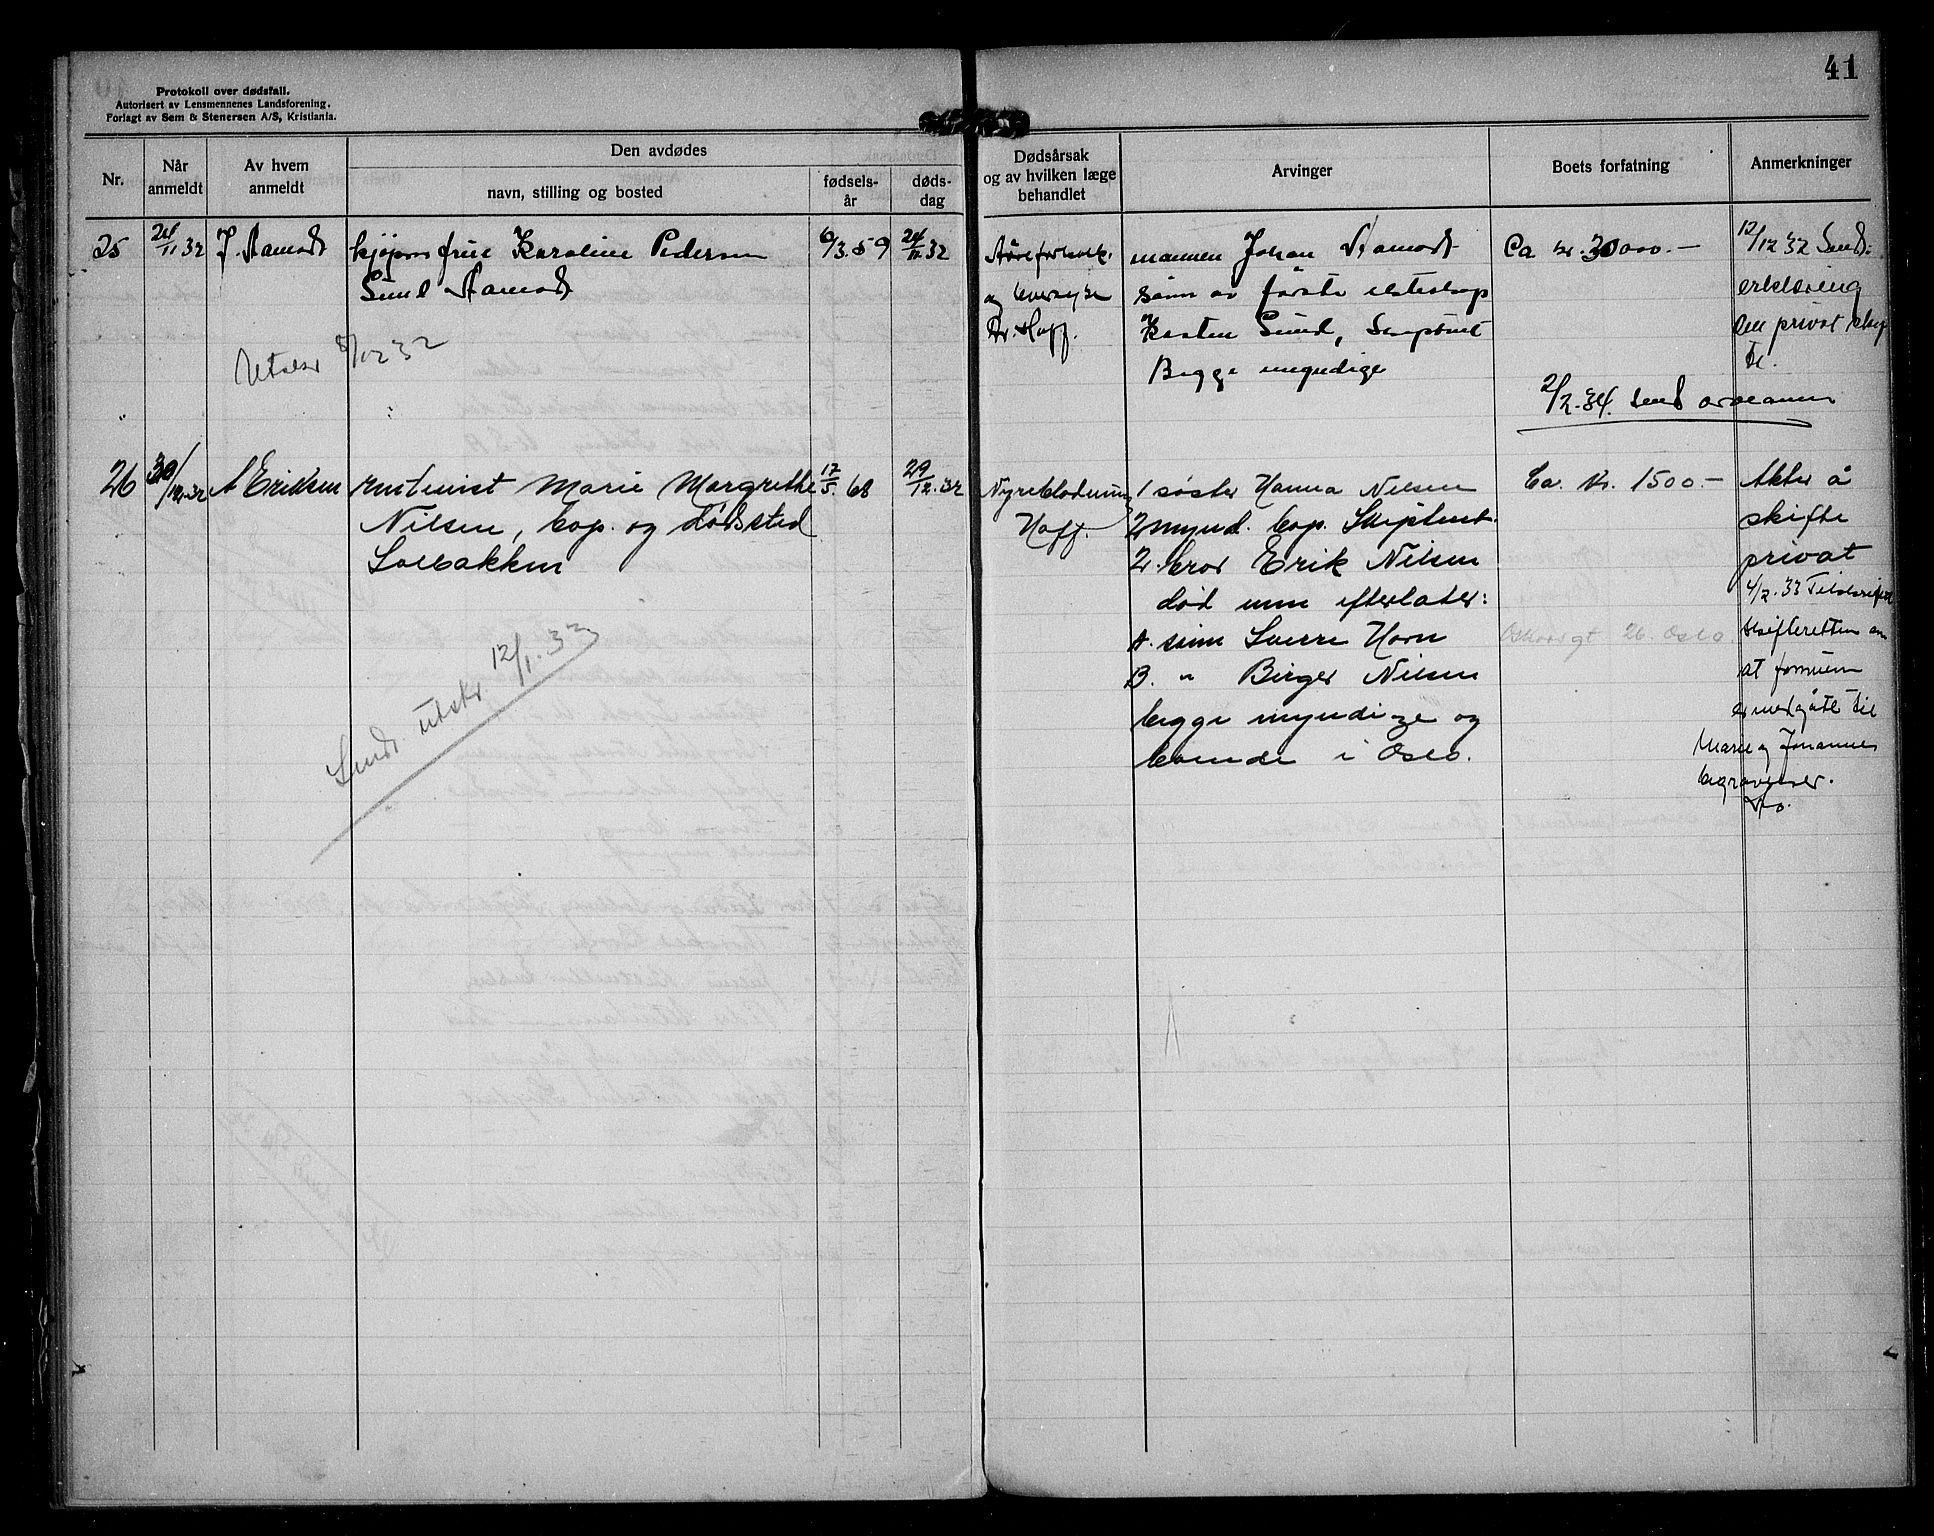 41
Protokoll over dødsfall.
Autorisert av Lensmennenes Landsforening.
Forlagt av Sem & Stenersen A/S, Kristiania.
Nr.
Når anmeldt
Av hvem anmeldt
Den avdødes
navn, stilling og bosted
fødsels-år
døds-dag
Dødsårsak og av hvilken læge behandlet
Arvinger
Boets forfatning
Anmerkninger
25
24/11 32
J. Aamodt
kjøpm frue Karoline Pedersen
Sund Aamodt
6/3.59
24/11.32
og
Dr. Hoff.
mannen Johan Aamodt
sønn av første ekteskap
Karsten Sund, Skiptvet
Begge myndige
Ca kr. 30000.-
12/12 32 Sendt
erklæring
om privat skif
te.
Utskr 8/12 32
2/2.34. Sendt
26
30/12.32
A Eriksen
rentenist Marie Margrethe
Nilsen, bop. og dødssted
Solbakken
17/5. 68
29/12.32
Nyreblødning
Hoff.
1 søster Hanna Nilsen
mynd. bop. Skiptvet.
2. bror Erik Nilsen
død men efterlater:
A. sønn Sverre Horn
B. " Birger Nilsen
begge myndige og
boende i Oslo.
Ca. kr. 1500.-
26. Oslo.
Akter å
skifte
privat
4/2.33 Tilskrevet
skifteretten om
at formuen
er medgått til
Marie og Johannes
begravelser.
Sendt utskr 12/1.33